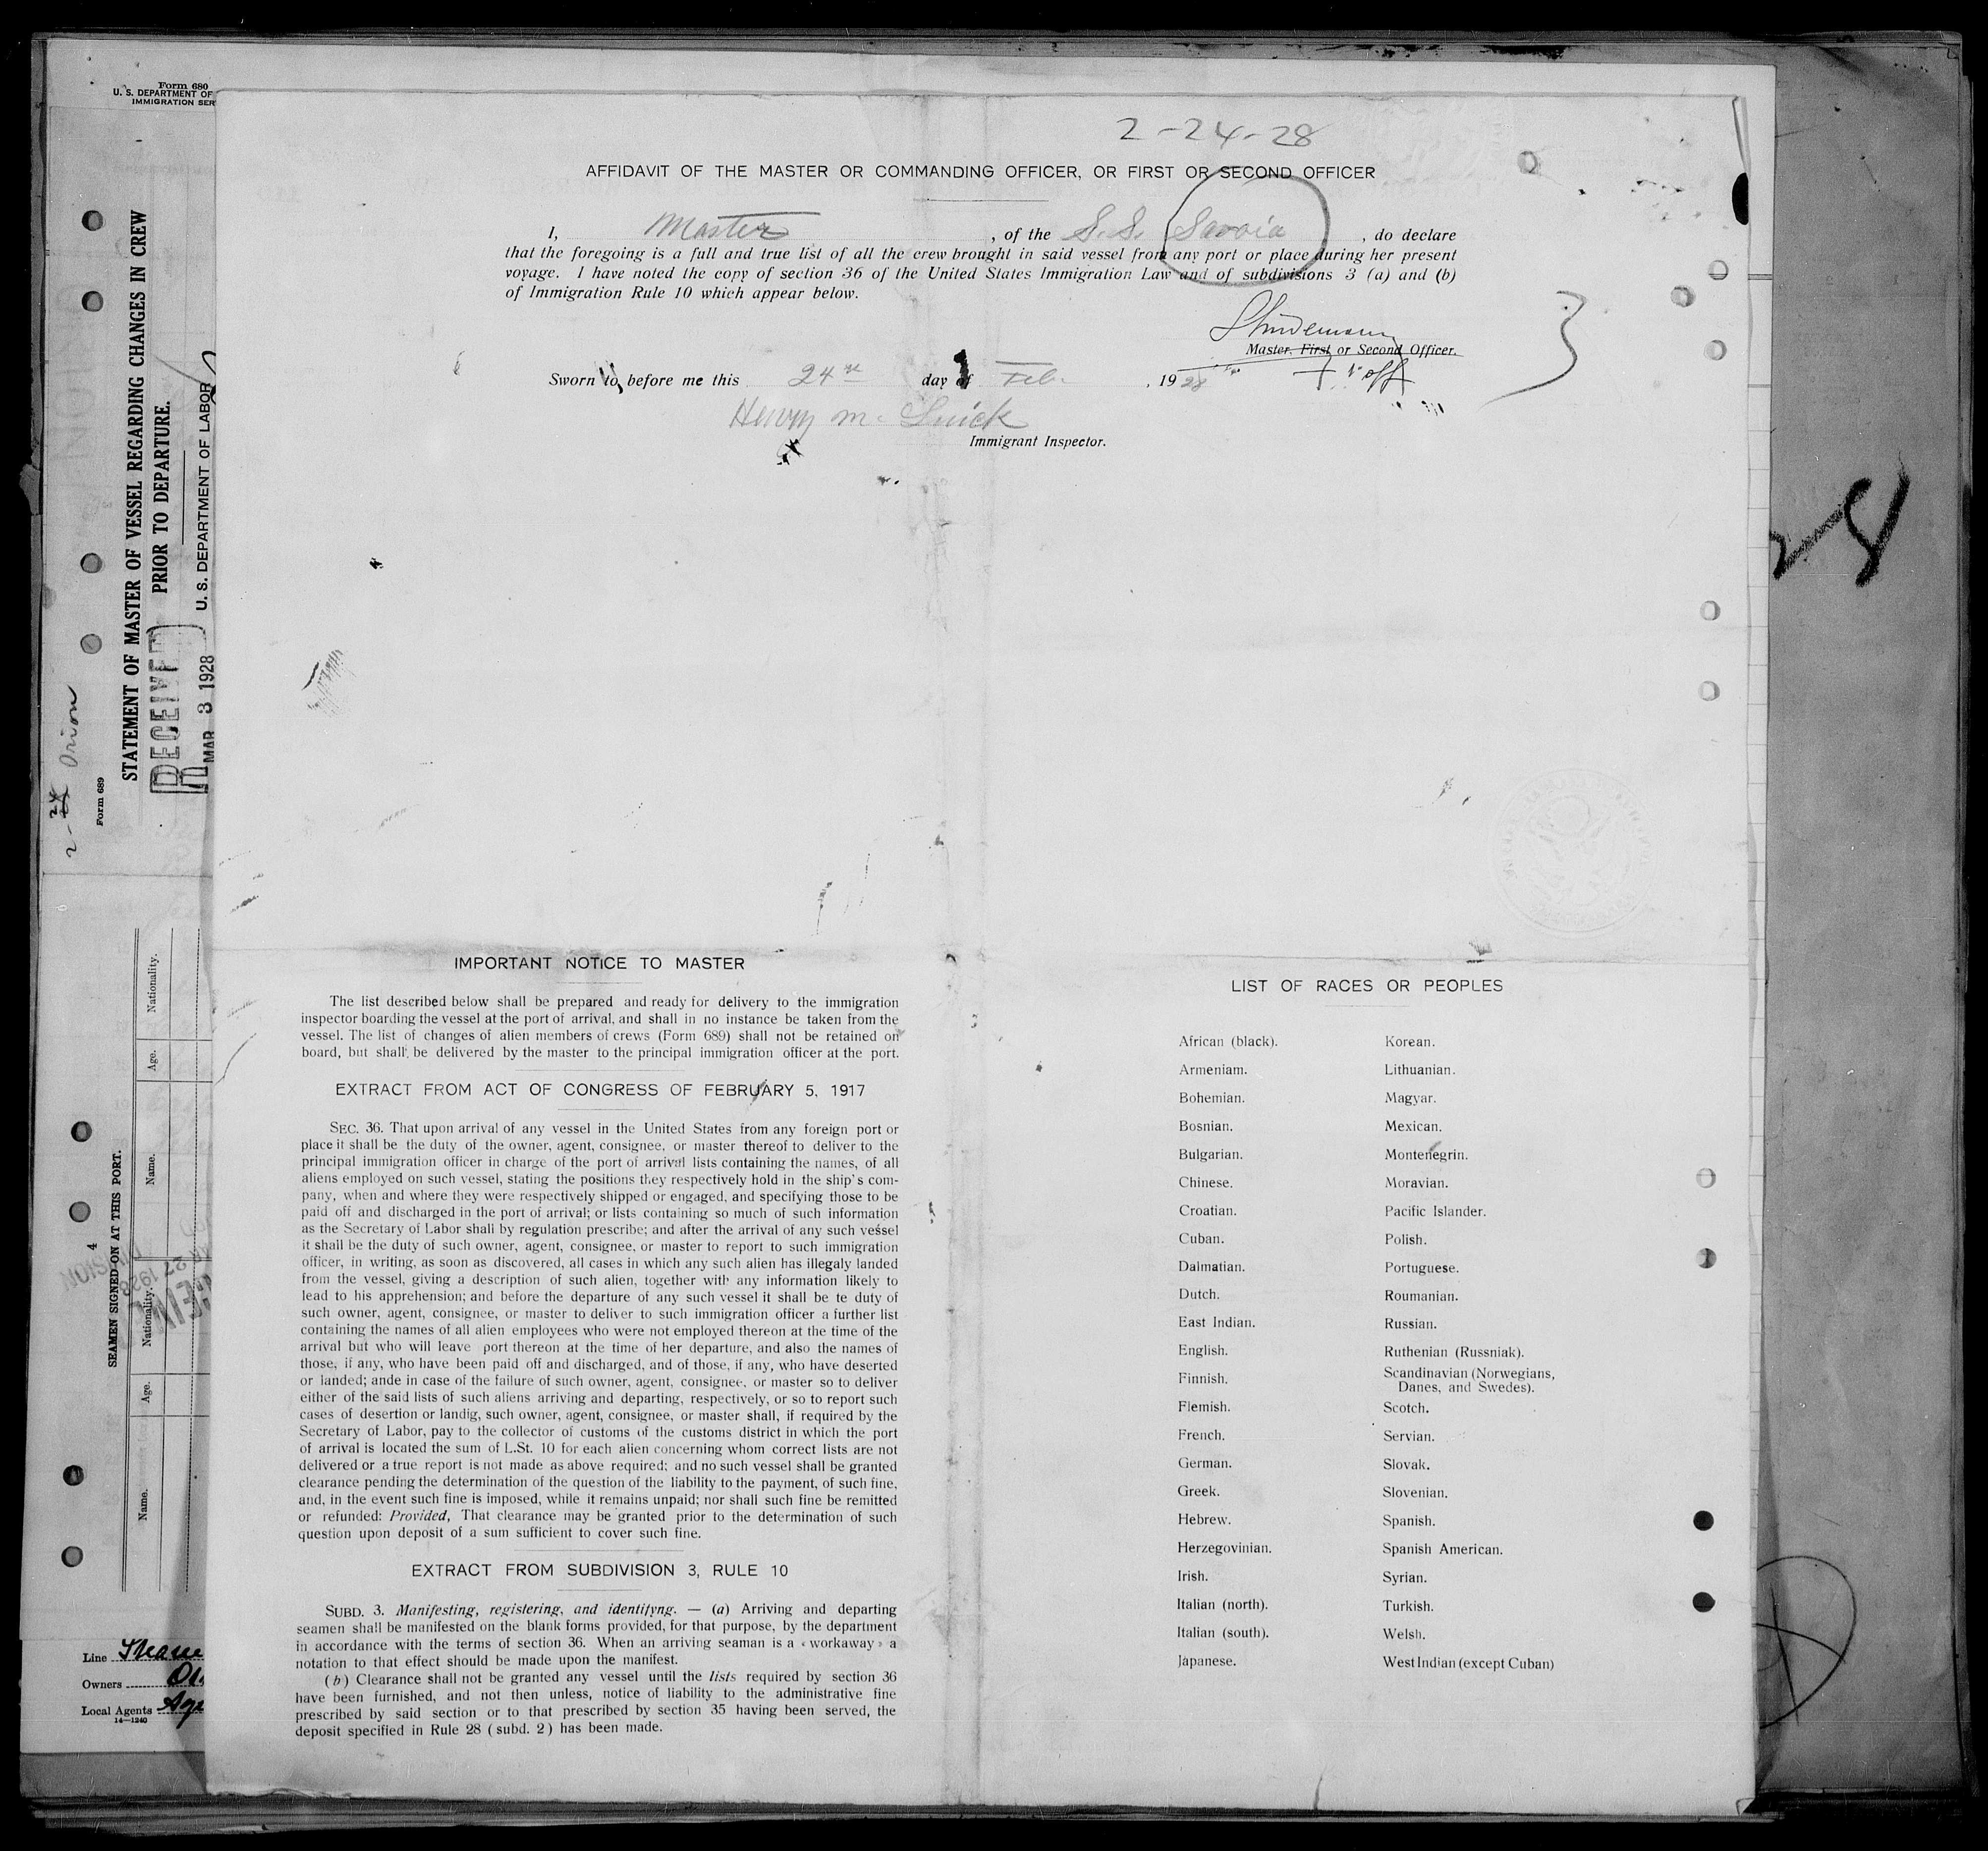 Form 680
U. S. DEPARTMENT OF
IMMIGRATION SER
STATEMENT OF MASTER OF VESSEL REGARDING CHANGES IN CREW
PRIOR TO DEPARTURE.
U. S. DEPARTMENT OF LABOR
RECEIVED
MAR 3 1928
2-24 Orion
Form 689
Nationality.
Age.
Name.
4
SEAMEN SIGNED ON AT THIS PORT.
Nationality.
Age.
Name.
27 1928
Line
Owners
Local Agents
14—1240
2-24-28
AFFIDAVIT OF THE MASTER OR COMMANDING OFFICER, OR FIRST OR SECOND OFFICER
I, Master, of the S.S. Savoia, do declare
that the foregoing is a full and true list of all the crew brought in said vessel from any port or place during her present
voyage. I have noted the copy of section 36 of the United States Immigration Law and of subdivisions 3 (a) and (b)
of Immigration Rule 10 which appear below.
Master, First or Second Officer.
Sworn to before me this 24th day of Feb. , 1928
Henry
Immigrant Inspector.
28
IMPORTANT NOTICE TO MASTER
The list described below shall be prepared and ready for delivery to the immigration
inspector boarding the vessel at the port of arrival, and shall in no instance be taken from the
vessel. The list of changes of alien members of crews (Form 689) shall not be retained on
board, but shall be delivered by the master to the principal immigration officer at the port.
EXTRACT FROM ACT OF CONGRESS OF FEBRUARY 5, 1917
SEC. 36. That upon arrival of any vessel in the United States from any foreign port or
place it shall be the duty of the owner, agent, consignee, or master thereof to deliver to the
principal immigration officer in charge of the port of arrival lists containing the names, of all
aliens employed on such vessel, stating the positions they respectively hold in the ship's com-
pany, when and where they were respectively shipped or engaged, and specifying those to be
paid off and discharged in the port of arrival; or lists containing so much of such information
as the Secretary of Labor shall by regulation prescribe; and after the arrival of any such vessel
it shall be the duty of such owner, agent, consignee, or master to report to such immigration
officer, in writing, as soon as discovered, all cases in which any such alien has illegaly landed
from the vessel, giving a description of such alien, together with any information likely to
lead to his apprehension; and before the departure of any such vessel it shall be te duty of
such owner, agent, consignee, or master to deliver to such immigration officer a further list
containing the names of all alien employees who were not employed thereon at the time of the
arrival but who will leave port thereon at the time of her departure, and also the names of
those, if any, who have been paid off and discharged, and of those, if any, who have deserted
or landed; ande in case of the failure of such owner, agent, consignee, or master so to deliver
either of the said lists of such aliens arriving and departing, respectively, or so to report such
cases of desertion or landig, such owner, agent, consignee, or master shall, if required by the
Secretary of Labor, pay to the collector of customs of the customs district in which the port
of arrival is located the sum of L.St. 10 for each alien concerning whom correct lists are not
delivered or a true report is not made as above required; and no such vessel shall be granted
clearance pending the determination of the question of the liability to the payment, of such fine,
and, in the event such fine is imposed, while it remains unpaid; nor shall such fine be remitted
or refunded: Provided, That clearance may be granted prior to the determination of such
question upon deposit of a sum sufficient to cover such fine.
EXTRACT FROM SUBDIVISION 3, RULE 10
SUBD. 3. Manifesting, registering, and identifyng. — (a) Arriving and departing
seamen shall be manifested on the blank forms provided, for that purpose, by the department
in accordance with the terms of section 36. When an arriving seaman is a «workaway» a
notation to that effect should be made upon the manifest.
(b) Clearance shall not be granted any vessel until the lists required by section 36
have been furnished, and not then unless, notice of liability to the administrative fine
prescribed by said section or to that prescribed by section 35 having been served, the
deposit specified in Rule 28 (subd. 2) has been made.
LIST OF RACES OR PEOPLES
African (black).
Armeniam.
Bohemian.
Bosnian.
Bulgarian.
Chinese.
Croatian.
Cuban.
Dalmatian.
Dutch.
East Indian.
English.
Finnish.
Flemish.
French.
German.
Greek.
Hebrew.
Herzegovinian.
Irish.
Italian (north).
Italian (south).
Japanese.
Korean.
Lithuanian.
Magyar.
Mexican.
Montenegrin.
Moravian.
Pacific Islander.
Polish.
Portuguese.
Roumanian.
Russian.
Ruthenian (Russniak).
Scandinavian (Norwegians,
Danes, and Swedes).
Scotch.
Servian.
Slovak.
Slovenian.
Spanish.
Spanish American.
Syrian.
Turkish.
Welsh.
West Indian (except Cuban)